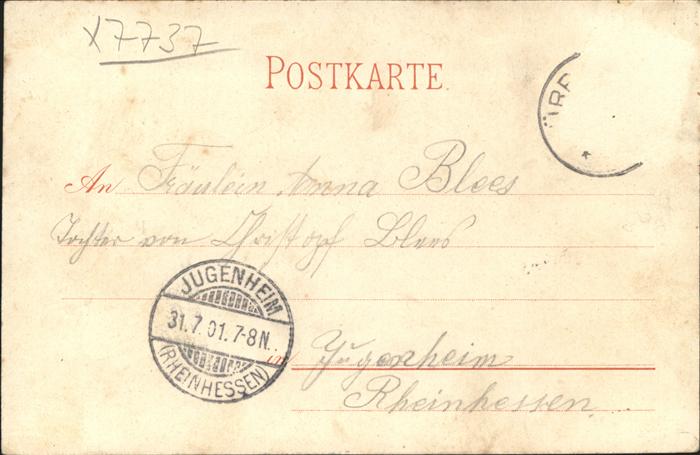 X7737
POSTKARTE
ÜRF
*
An Fräulein Anna Blees
Tochter von Christopf Blees
JUGENHEIM
31.7.01.7-8N.
(RHEINHESSEN)
in Jugenheim
Rheinhessen.